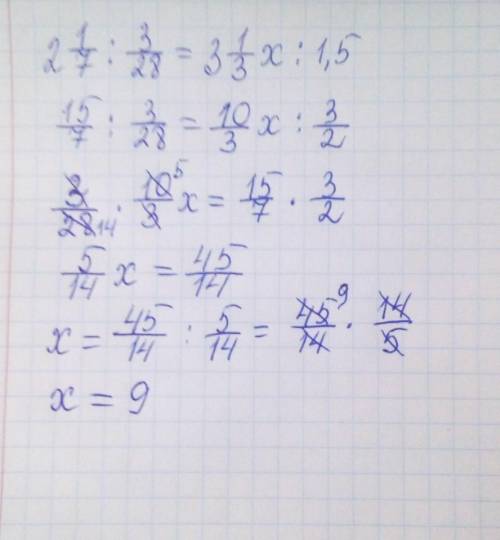 2 1/7 : 3/28 = 3 1/3 x : 1,5
15/7 : 3/28 = 10/3 x : 3/2
3/28 14 · 10 5/3 x = 15/7 · 3/2
5/14 x = 45/14
x = 45/14 : 5/14 = 45 9/14 · 14/5
x = 9